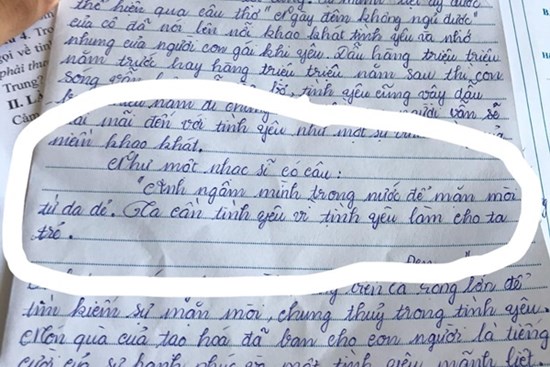 thể hiện qua câu thơ "Ngày đêm không ngủ được"
của cô đã nói lên nỗi khao khát tình yêu và nhớ
nhung của người con gái khi yêu. Dẫu hàng triệu triệu
năm trước hay hàng triệu triệu năm sau thì con
song vẫn tình yêu cũng vậy dẫu
năm đi chăng người vẫn sẽ
mãi đến với tình yêu như một sự của
niềm khao khát.
Như một nhạc sĩ có câu:
"Anh ngâm mình trong nước để mặn mòi
từ da dẻ. Ta cần tình yêu vì tình yêu làm cho ta
trẻ.
lớn để
tìm kiếm sự mặn mòi, chung thuỷ trong tình yêu.
Món quà của tạo hoá đã ban cho con người là tiếng
cười của sự hạnh phúc và một tình yêu mãnh liệt.
4. Tro
gọi về tìn
phải thươ
Trung?
II. L
Cảm